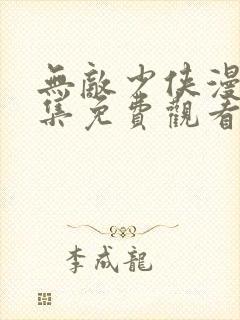 無敵少俠漫
集免費觀看
李成龍